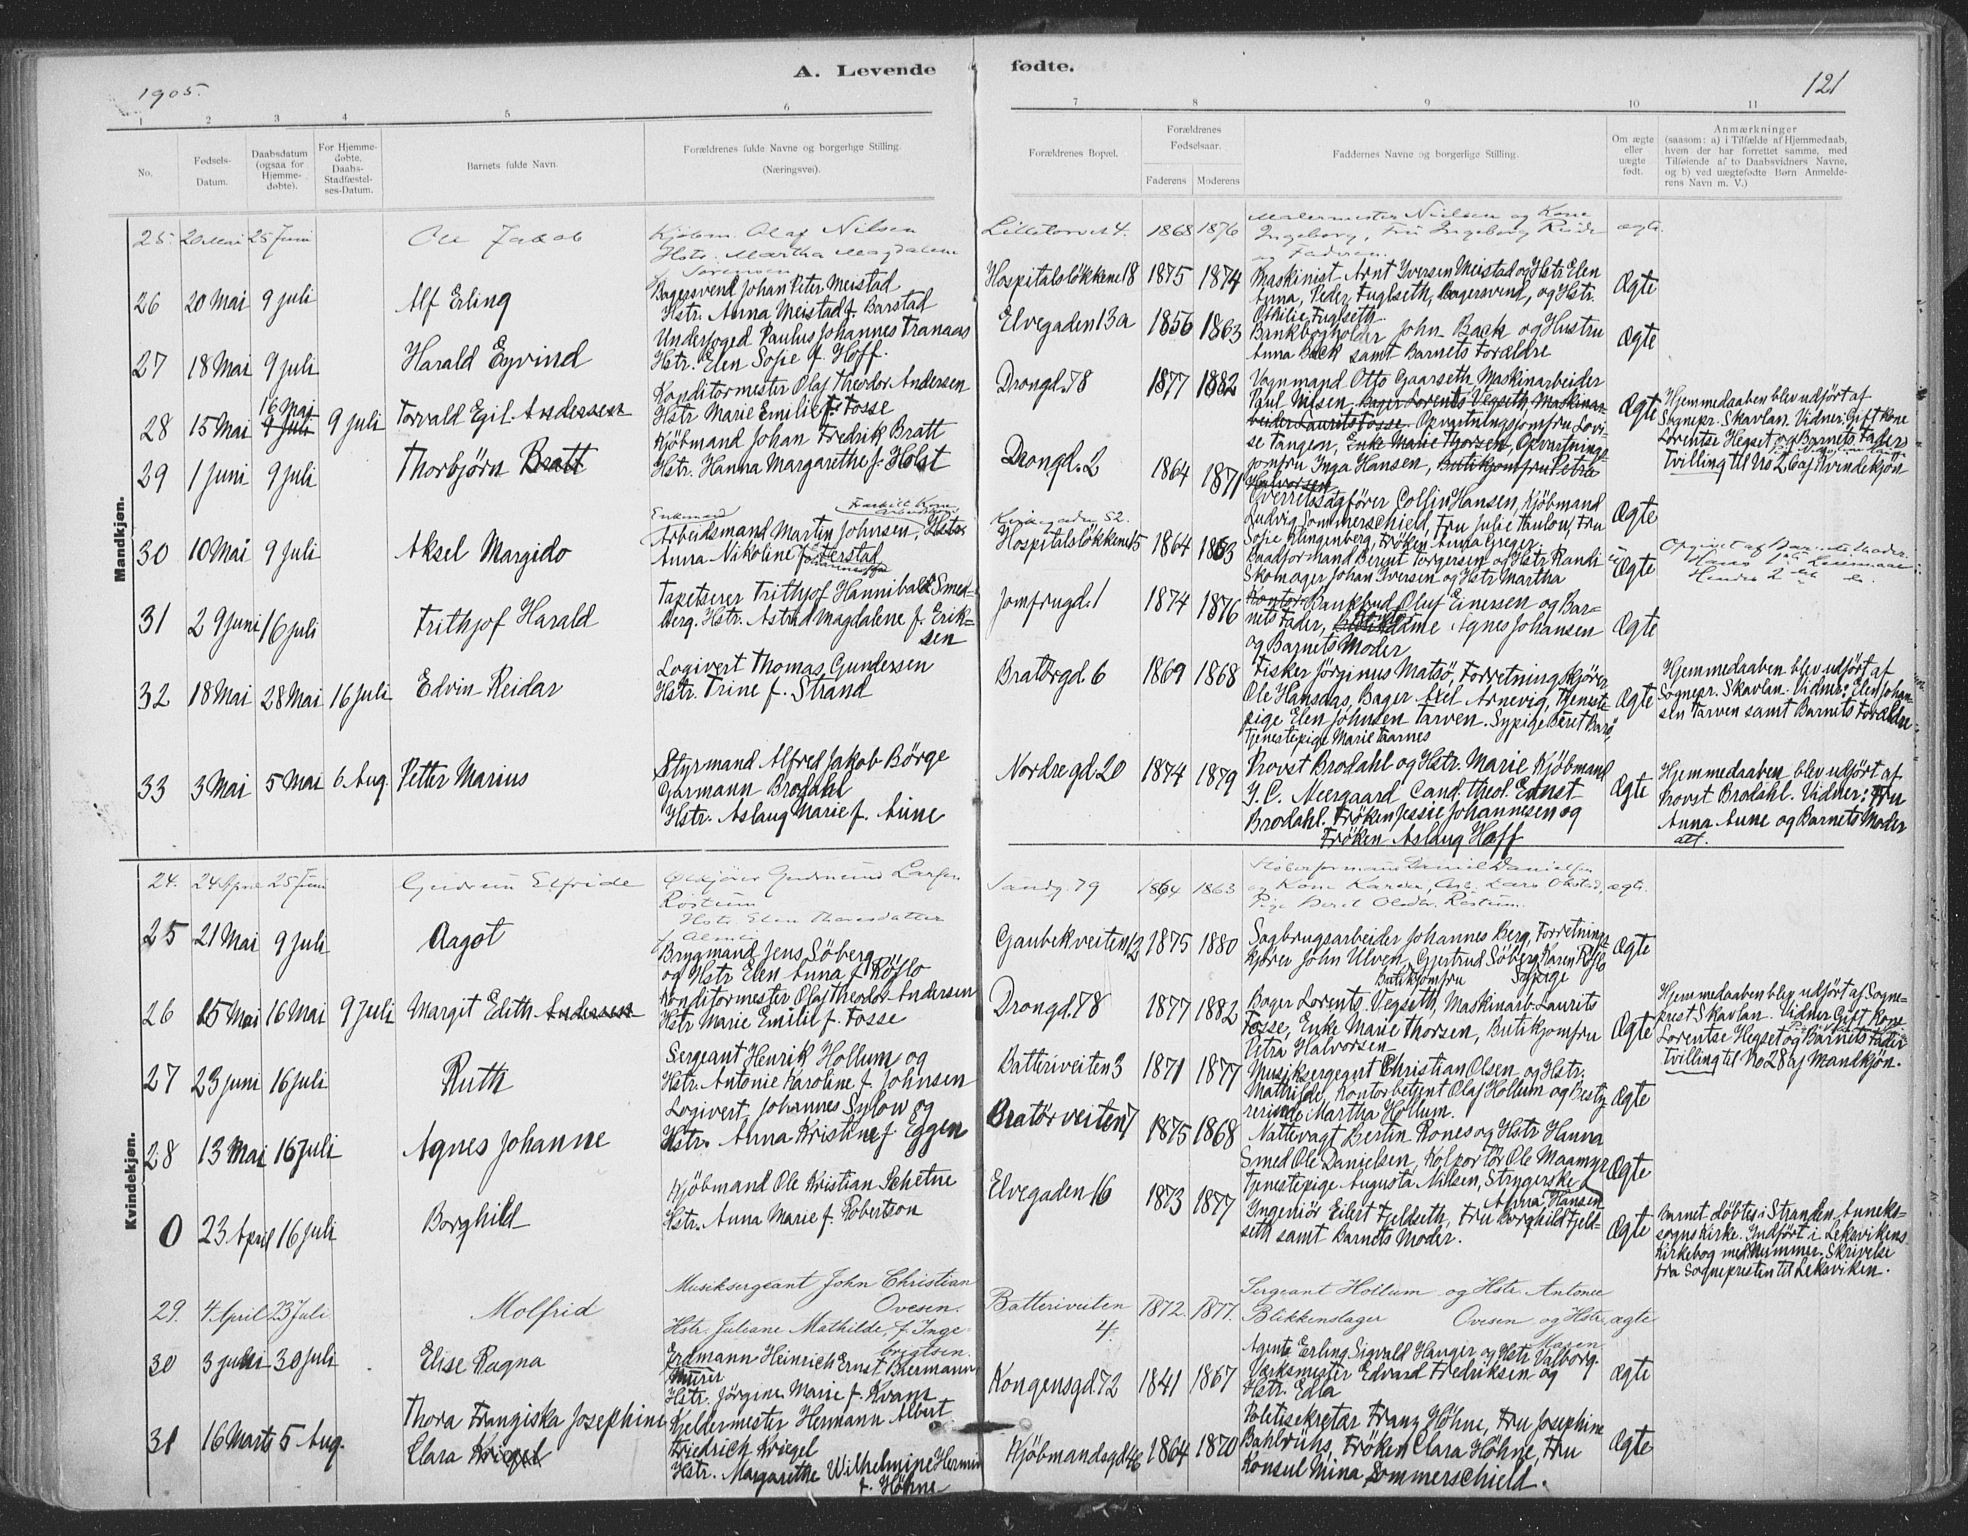 1905.
A. Levende fødte.
121
1 2 3 4 5 6 7 8 9 10 11
No.
Fødsels-Datum.
Daabsdatum (ogsaa for Hjemme-døbte).
For Hjemme-døbte, Daabs-Stadfæstel-ses-Datum.
Barnets fulde Navn.
Forældrenes fulde Navne og borgerlige Stilling. (Næringsvei).
Forældrenes Bopæl.
Forældrenes Fødselsaar.
Faderens Moderens
Faddernes Navne og borgerlige Stilling.
Om ægte eller uægte født.
Anmærkninger
(saasom: a) i Tilfælde af Hjemmedaab, hvem der har forrettet samme, med Tilføiende af to Daabsvidners Navne, og b) ved uægtefødte Børn Anmelderens Navn m. V.)
Mandkjøn.
25. 20 Mai 25 Juni
Ole Jakob
Kjøbm. Olaf Nilsen
Hstr. Martha Magdalene
f. Sørensen
Lilletorvet 4. 1868 1876
Malermester Nielsen og Kone
Ingeborg, Fru Ingeborg
og Faderen.
ægte
26 20 Mai 9 juli
Alf Erling
Bagersvend Johan Peter Meistad
Hstr. Anna Meistad f. Barstad
Hospitalsløkkene 18 1875 1874
Maskinist Arnt Iversen Meistad og Hstr Elen
Anna, Peder Fuglseth, Bagersvend, og Hstr.
Othilie Fuglseth
Ægte
27 18 Mai 9 juli
Harald Eyvind
Underfoged Paulus Johannes Tranaas
Hstr. Elen Sofie f. Hoff.
Elvegaden 13a 1856 1863
Bankbogholder John Back og Hustru
Anna Back samt Barnets Forældre
Ægte
28 15 Mai 16 Mai 9 juli 9 juli
Torvald Egil Andersen
Konditormester Olaf Theodor Andersen
Hstr Marie Emilie f. Fosse
Drongd. 78 1877 1882
Vognmand Otto Gaarseth, Maskinarbeider
Paul Nilsen. Bager Lorents Vegseth, Maskinar-
beider Laurits Fosse. Opvartningsjomfru Lovi-
se Tangen, Enke Marie Thorsen, Opvartnings-
jomfru Inga Hansen, Butikjomfru Petra
Halvorsen
Ægte
Hjemmedaaben blev udført af
Sognepr. Skavlan. Vidner: Gift Kone
Lorentse Hegset og Barnets Fader
Tvilling til No 26 af Kvindekjøn
29 1 juni 9 juli
Thorbjørn Bratt
Kjøbmand Johan Fredrik Bratt
Hstr. Hanna Margarethe f. Holst
Drongd. 2 1864 1871
Overretssagfører Collin Hansen, Kjøbmand
Ludvig Sommerschield, Fru Julie Thulow, Fru
Sofie Klingenberg, Frøken Anna Greger.
Ægte
30 10 Mai 9 juli
Aksel Margido
Enkemand Fraskilt Kone
Arbeidsmand Martin Johnsen, Hstr
Anna Nikoline
Hospitalsløkkene 15 1864 1863
Baadformand Berent Torgersen og Hstr Randi
Skomager Johan Iversen og Hstr Martha
uÆgte
Opgivet af Barnets Moder.
31 29 juni 16 juli
Frithjof Harald
Tapetserer Frithjof Hannibal Smed-
berg. Hstr. Astrid Magdalene f. Erik-
sen
Jomfrugd. 1 1874 1876
Kontor Bankbud Oluf Einersen og Bar-
nets Fader, Butikdame Agnes Johansen
og Barnets Moder
Ægte
32 18 Mai 28 Mai 16 juli
Edvin Reidar
Logivert Thomas Gundersen
Hstr. Trine f. Strand
Bratørgd 6 1869 1868
Fisker Jørginus Matsø, Forretningskjører
Ole Hansaas, Bager Axel Arnevig, Tjeneste-
pige Elen Johnsen Tarven. Sypige Berit Barø,
Tjenestepige Marie Aarnes
Ægte
Hjemmedaaben blev udført af
Sognepr. Skavlan. Vidner: Elen Johan-
sen Tarven samt Barnets Forældre
33 3 Mai 5 Mai 6 Aug.
Petter Marius
Styrmand Alfred Jakob Børge
Garmann Brodahl
Hstr. Aslaug Marie f. Aune
Nordregd 20 1874 1879
Provst Brodahl og Hstr. Marie, Kjøbmand
J. C. Neergaard Cand. theol. Ernst
Brodahl. Frøken Jessie Johannesen og
Frøken Aslaug Hoff
Ægte
Hjemmedaaben blev udført af
Provst Brodahl. Vidner: Fru
Anna Aune og Barnets Moder
Kvindekjøn.
24. 24 April 25 Juni
Gudrun Elfride
Gudmund Larsen
Røstum
Hstr. Elen Theresdatter
Sandg. 79 1864 1863
Støberformand Daniel Danielsen
og Kone Karen, Arb. Lars Okstad,
Pige Beret Olsdtr. Røstum.
ægte.
25 21 Mai 9 juli
Aagot
Brygmand Jens Søberg
og Hstr Elen Anna f. Røflo
Gaubekveiten 12 1875 1880
Sagbrugsarbeider Johannes Berg, Forretnings-
kjører John Ulven, Gjertrud Søberg, Karen Røflo
Butikjomfru Sypige
Ægte
26 15 Mai 16 Mai 9 juli
Margit Edith Andersen
Konditormester Olaf Theodor Andersen
Hstr Marie Emilie f. Fosse
Drongd. 78 1877 1882
Bager Lorents Vegseth, Maskinarb. Laurits
Fosse, Enke Marie Thorsen, Butikjomfru
Petra Halvorsen
Ægte
Hjemmedaaben blev udført af Sogne-
prest Skavlan. Vidner Gift Kone
Lorentse Hegset og Barnets Fader
Tvilling til No 28 af Mandkjøn.
27 23 juni 16 juli
Ruth
Sergeant Henrik Hollum og
Hstr. Antonie Karoline f. Johnsen
Batteriveiten 3 1871 1877
Musiksergeant Christian Olsen og Hstr.
Mathilde, Kontorbetjent Olaf Hollum og Besty-
rerinde Martha Hollum.
Ægte
28 13 Mai 16 juli
Agnes Johanne
Logivert Johannes Sylow og
Hstr. Anna Kristine f Eggen
Bratørveiten 7 1875 1868
Nattevagt Bertin Rones og Hstr Hanna
Smed Ole Danielsen, Kolportør Ole Maamyr
Tjenestepige Augusta Nilsen, Strygerske
Anna Hansen
Ægte
0 23 April 16 juli
Borghild
Kjøbmand Ole Kristian Schetne
Hstr. Anna Marie f. Robertson
Elvegaden 16 1873 1877
Ingeniør Eilert Fjeldseth, Fru Borghild Fjeld-
seth samt Barnets Moder.
Ægte
Barnet døbtes i Stranden Anneks-
sognskirke. Indført i Leksvikens
Kirkebog med Nummer. Skrivelse
fra Sognepresten til Leksviken.
29. 4 April 23 Juli
Molfrid
Musiksergeant John Christian
Ovesen.
Hstr. Juliane Mathilde f. Inge-
brigtsen.
Batteriveiten 4. 1872. 1877.
Sergeant Hollum og Hstr. Antonie
Blikkenslager Ovesen og Hstr.
ægte
30 3 juni 30 juli
Elise Ragna
Erdmann Heinrich Ernst Biermann
Murer
Hstr. Jørgine Marie f. Kvam
Kongensgd. 72 1841 1867
Agent Erling Sigvald Hanger og Hstr Valborg.
Værksmester Edvard Fredriksen og
Hstr. Edla
Ægte
31 16 Marts 5 Aug.
Thora Franziska Josephine
Clara Kriegel
Kjeldermester Hermann Albert
Friedrich Kriegel
Hstr. Margarethe Wilhelmine Hermin
f. Høhne
Kjøbmandsgd 46 1864 1870
Politisekretær Franz Høhne, Fru Josephine
Bahlrühs, Frøken Clara Høhne, Fru
Konsul Mina Sommerschield.
Ægte